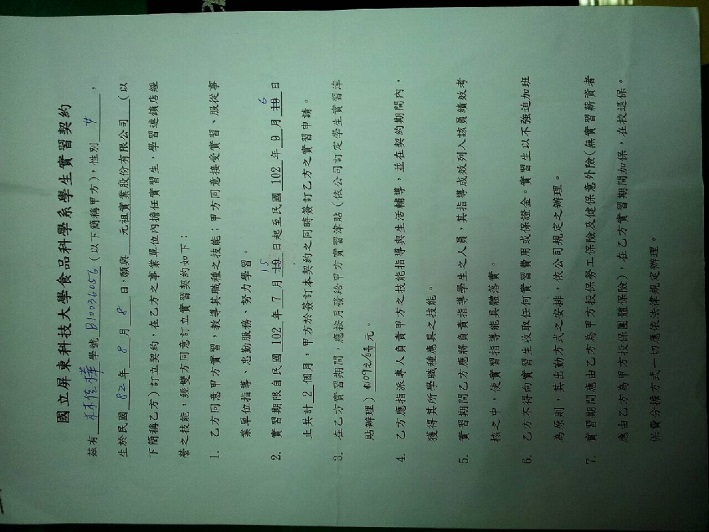 國立屏東科技大學食品科學系學生實習契約
茲有 林俊樺 學號 B10036056 (以下簡稱甲方)，性別 女，
生於民國 82 年 8 月 8 日，願與 元祖實業股份有限公司 (以
下簡稱乙方)訂立契約，在乙方之事業單位內擔任實習生，學習連鎖店經
營之技能，經雙方同意訂立實習契約如下：
1. 乙方同意甲方實習，教導其職種之技能；甲方同意接受實習、服從事
業單位指導、忠勤服務、努力學習。
2. 實習期限自民國 102 年 7 月 15 日起至民國 102 年 9 月 6 日
止共計 2 個月，甲方於簽訂本契約之同時簽訂乙方之實習申請。
3. 在乙方實習期間，應按月發給甲方實習津貼(依公司訂定學生實習津
貼辦理) 元。
4. 乙方應指派專人負責甲方之技能指導與生活輔導，並在契約期間內，
獲得其所學職種應具之技能。
5. 實習期間乙方應將負責指導學生之人員，其指導成效列入該員績效考
核之中，使實習指導能具體落實。
6. 乙方不得向實習生收取任何實習費用或保證金。實習生以不強迫加班
為原則，其出勤方式之安排，依公司規定之辦理。
7. 實習期間應由乙方為甲方投保勞工保險及健保意外險(無實習薪資者
應由乙方為甲方投保團體保險)，在乙方實習期間加保，在校退保。
保費分擔方式一切應依法律規定辦理。